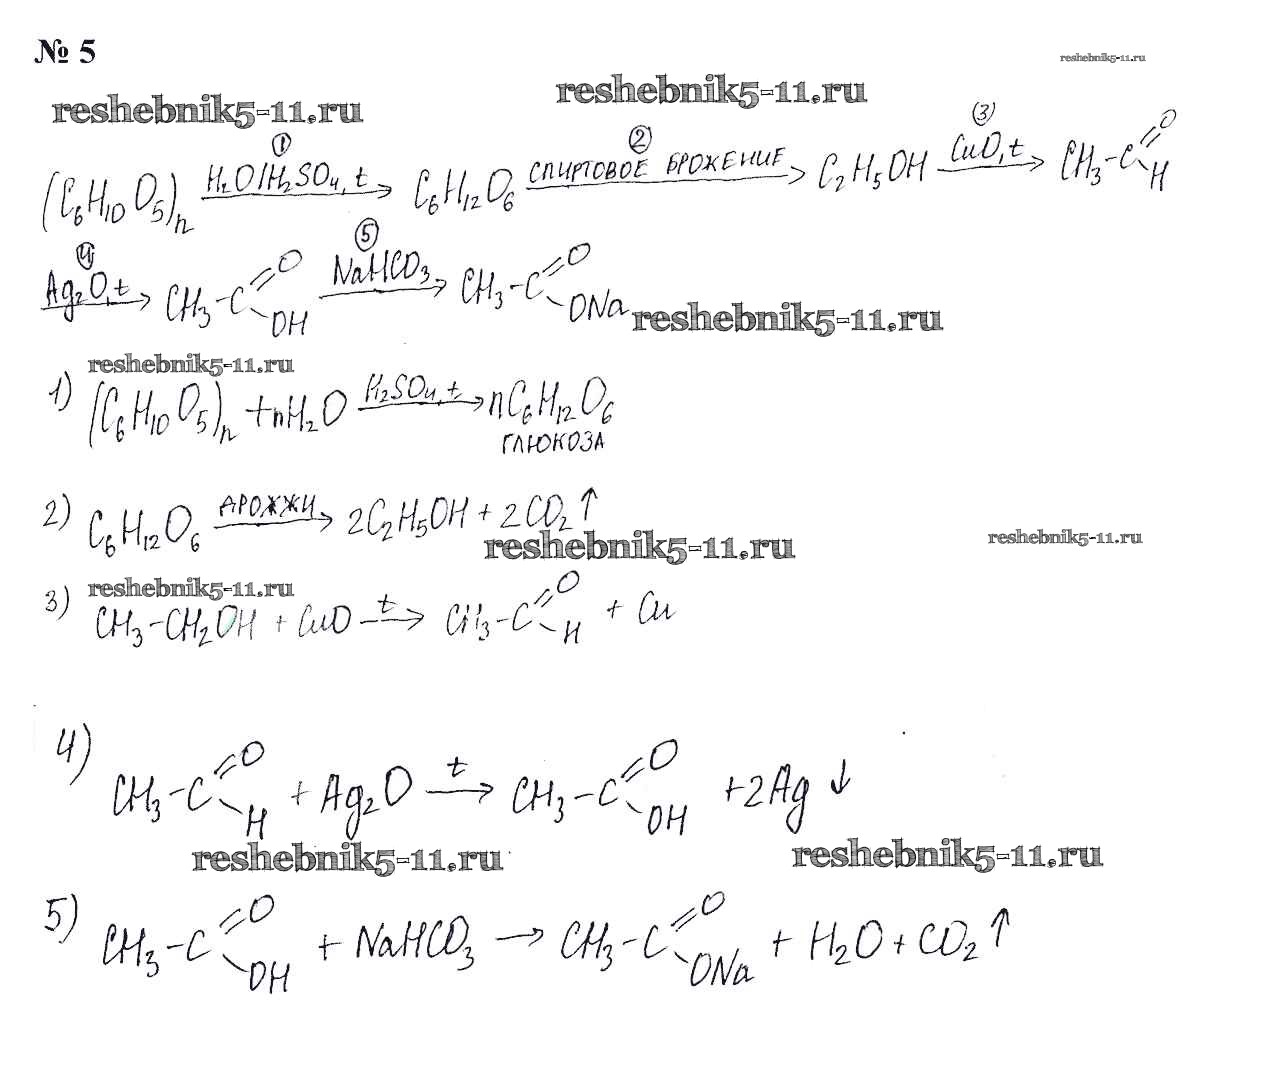 № 5
reshebnik5-11.ru
reshebnik5-11.ru reshebnik5-11.ru
(C₆H₁₀O₅)n ① H₂O/H₂SO₄, t → C₆H₁₂O₆ ② СПИРТОВОЕ БРОЖЕНИЕ → C₂H₅OH ③ CuO, t → CH₃-C=O H
④ Ag₂O, t → CH₃-C=O OH ⑤ NaHCO₃ → CH₃-C=O ONa
reshebnik5-11.ru
reshebnik5-11.ru
1) (C₆H₁₀O₅)n + nH₂O H₂SO₄, t → nC₆H₁₂O₆
ГЛЮКОЗА
2) C₆H₁₂O₆ ДРОЖЖИ → 2C₂H₅OH + 2CO₂↑
reshebnik5-11.ru reshebnik5-11.ru
reshebnik5-11.ru
3) CH₃-CH₂OH + CuO t → CH₃-C=O H + Cu
4) CH₃-C=O H + Ag₂O t → CH₃-C=O OH + 2Ag↓
reshebnik5-11.ru reshebnik5-11.ru
5) CH₃-C=O OH + NaHCO₃ → CH₃-C=O ONa + H₂O + CO₂↑